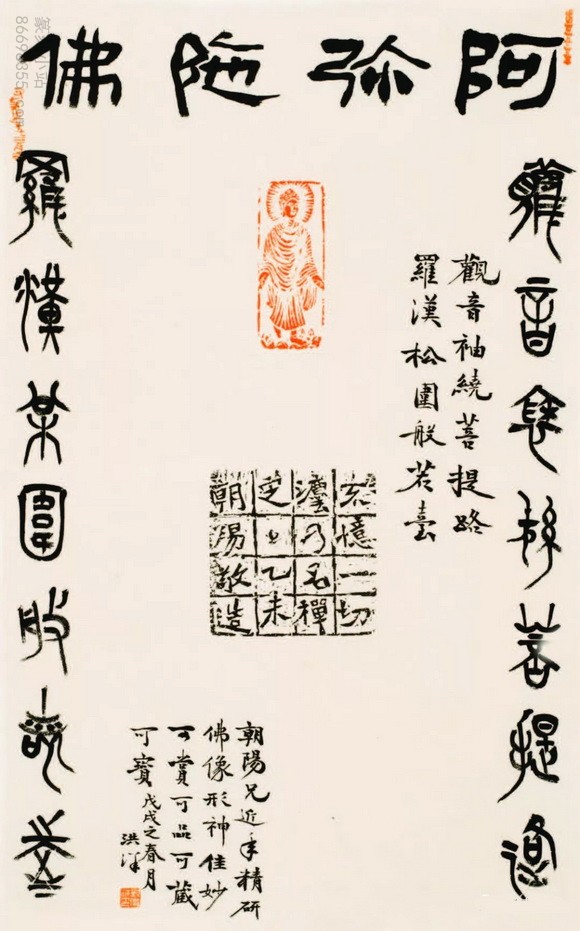 阿弥陁佛
觀音袖繞菩提路
羅漢松圍般若臺
觀音袖繞菩提路
羅漢松圍般若臺
不憶一切
灋乃名禪
乙未
朝陽敬造
朝陽兄近年精研
佛像形神佳妙
可賞可品可藏
可寶戊戌之春月
洪